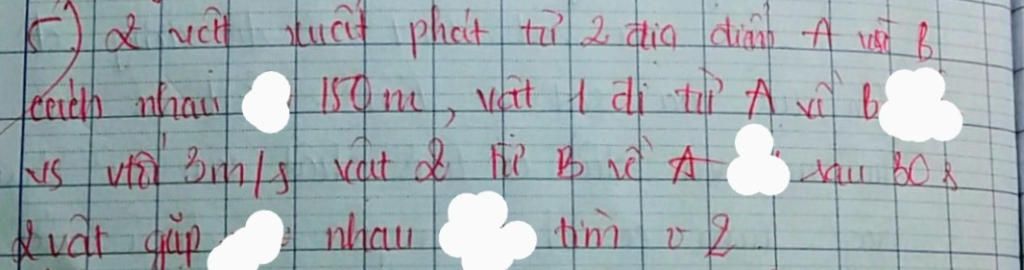 5) 2 vật xuất phát từ 2 địa điểm A và B
cách nhau 150m, vật 1 đi từ A về B
vs vtô 3m/s vật 2 từ B về A sau 30s
2 vật gặp nhau tìm v 2